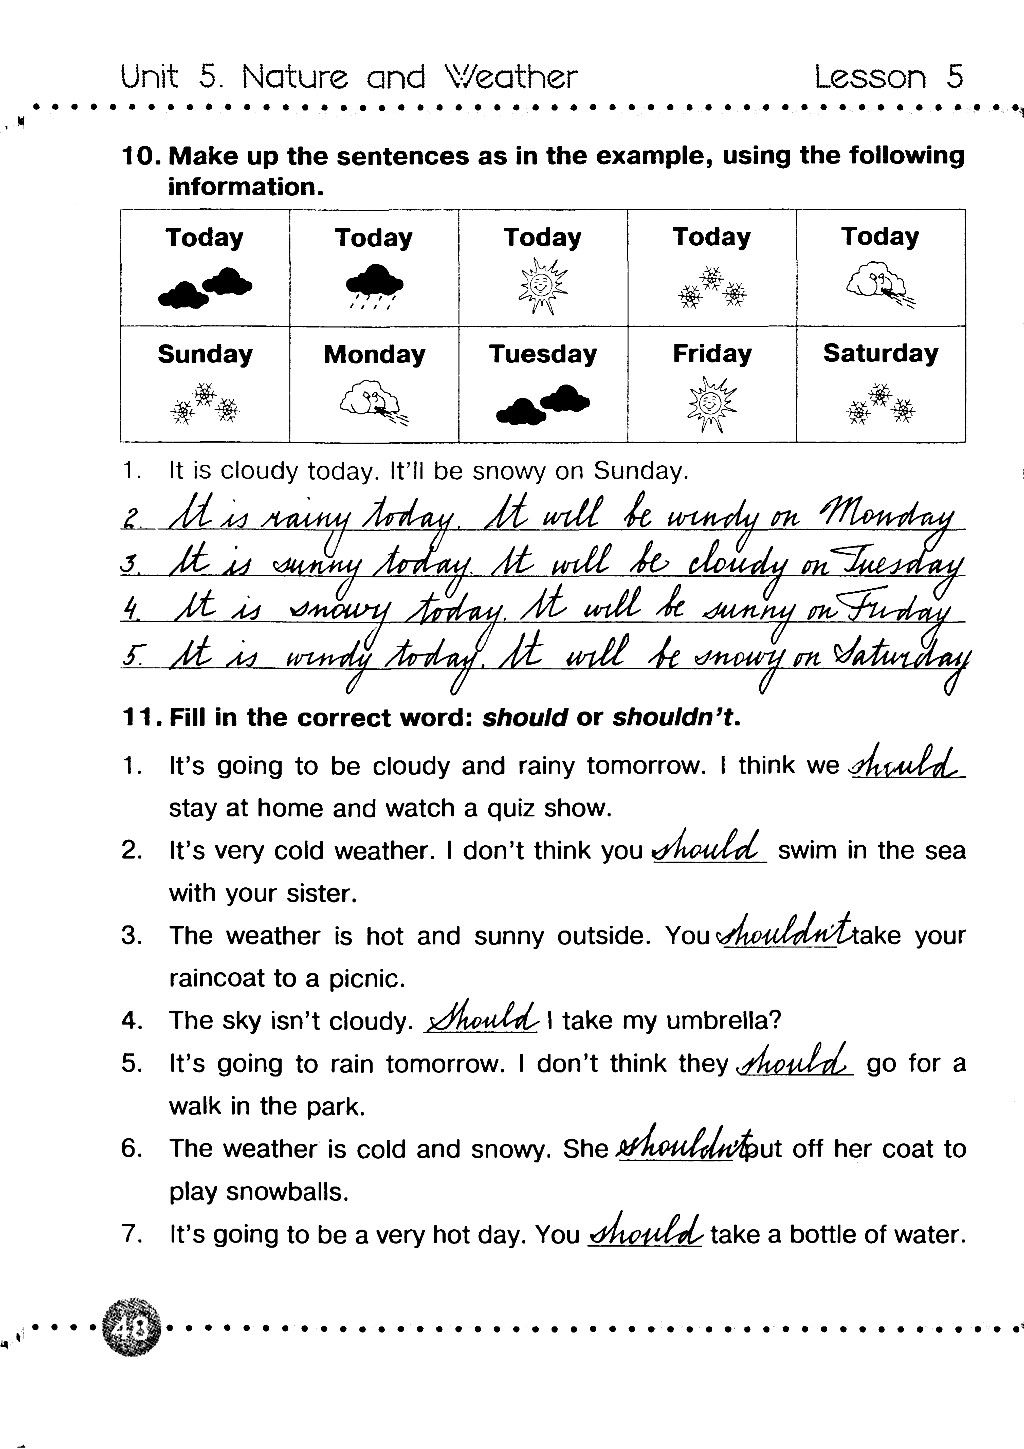 Unit 5. Nature and Weather Lesson 5
10. Make up the sentences as in the example, using the following
information.
Today Today Today Today Today
Sunday Monday Tuesday Friday Saturday
1. It is cloudy today. It'll be snowy on Sunday.
2. It is rainy today. It will be windy on Monday
3. It is sunny today. It will be cloudy on Tuesday
4. It is snowy today. It will be sunny on Friday
5. It is windy today. It will be snowy on Saturday
11. Fill in the correct word: should or shouldn't.
1. It's going to be cloudy and rainy tomorrow. I think we should
stay at home and watch a quiz show.
2. It's very cold weather. I don't think you should swim in the sea
with your sister.
3. The weather is hot and sunny outside. You shouldn't take your
raincoat to a picnic.
4. The sky isn't cloudy. Should I take my umbrella?
5. It's going to rain tomorrow. I don't think they should go for a
walk in the park.
6. The weather is cold and snowy. She shouldn't put off her coat to
play snowballs.
7. It's going to be a very hot day. You should take a bottle of water.
48